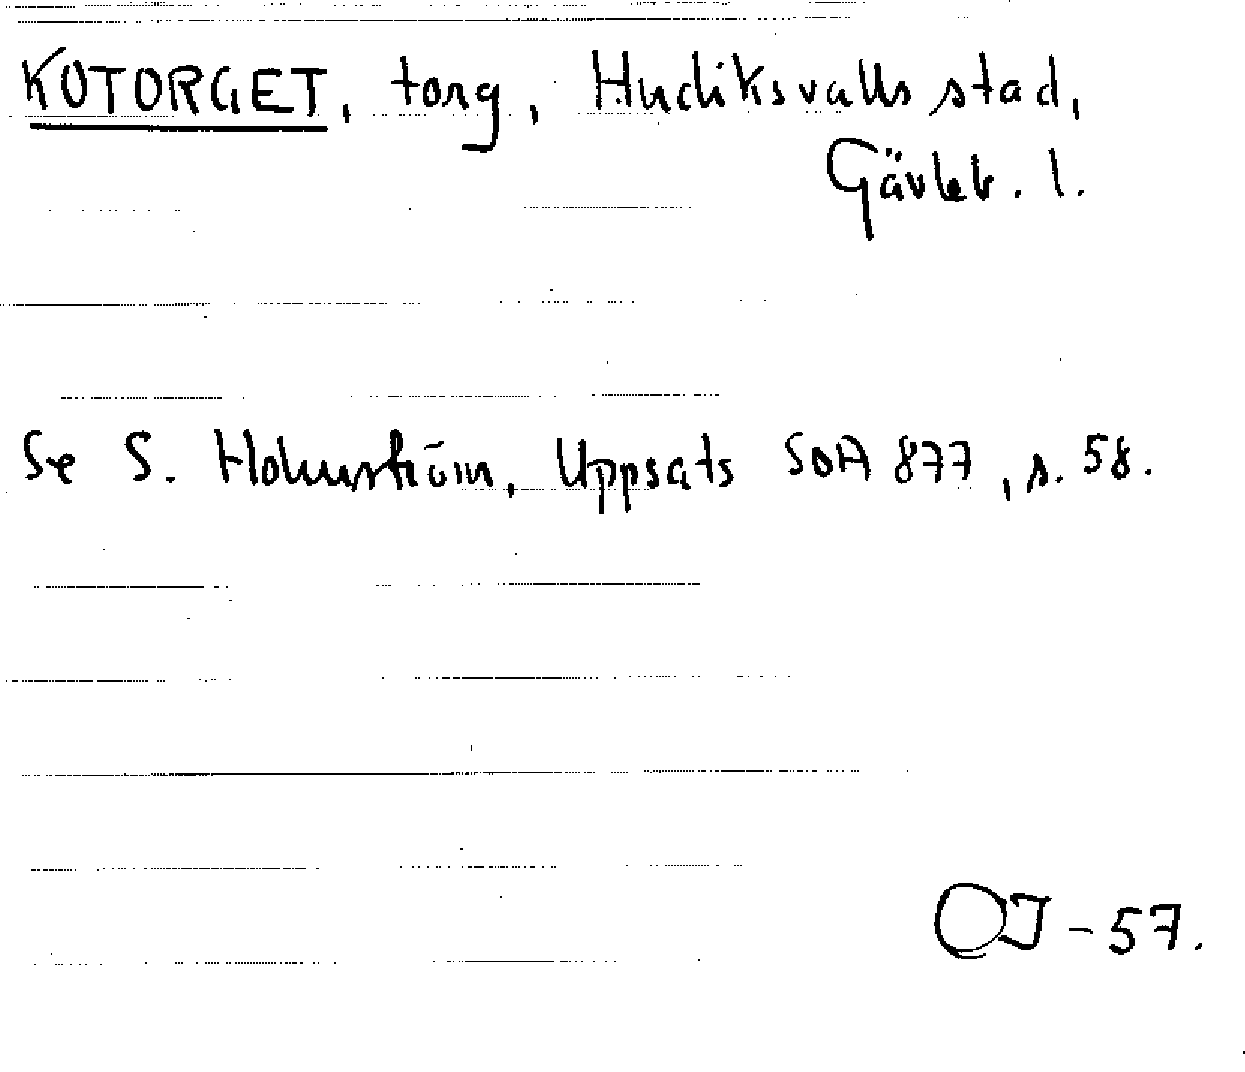 KOTORGET, torg, Hudiksvalls stad,
Gävleb. l.
Se S. Holmström, Uppsats SOA 877, s. 58.
OJ - 57.